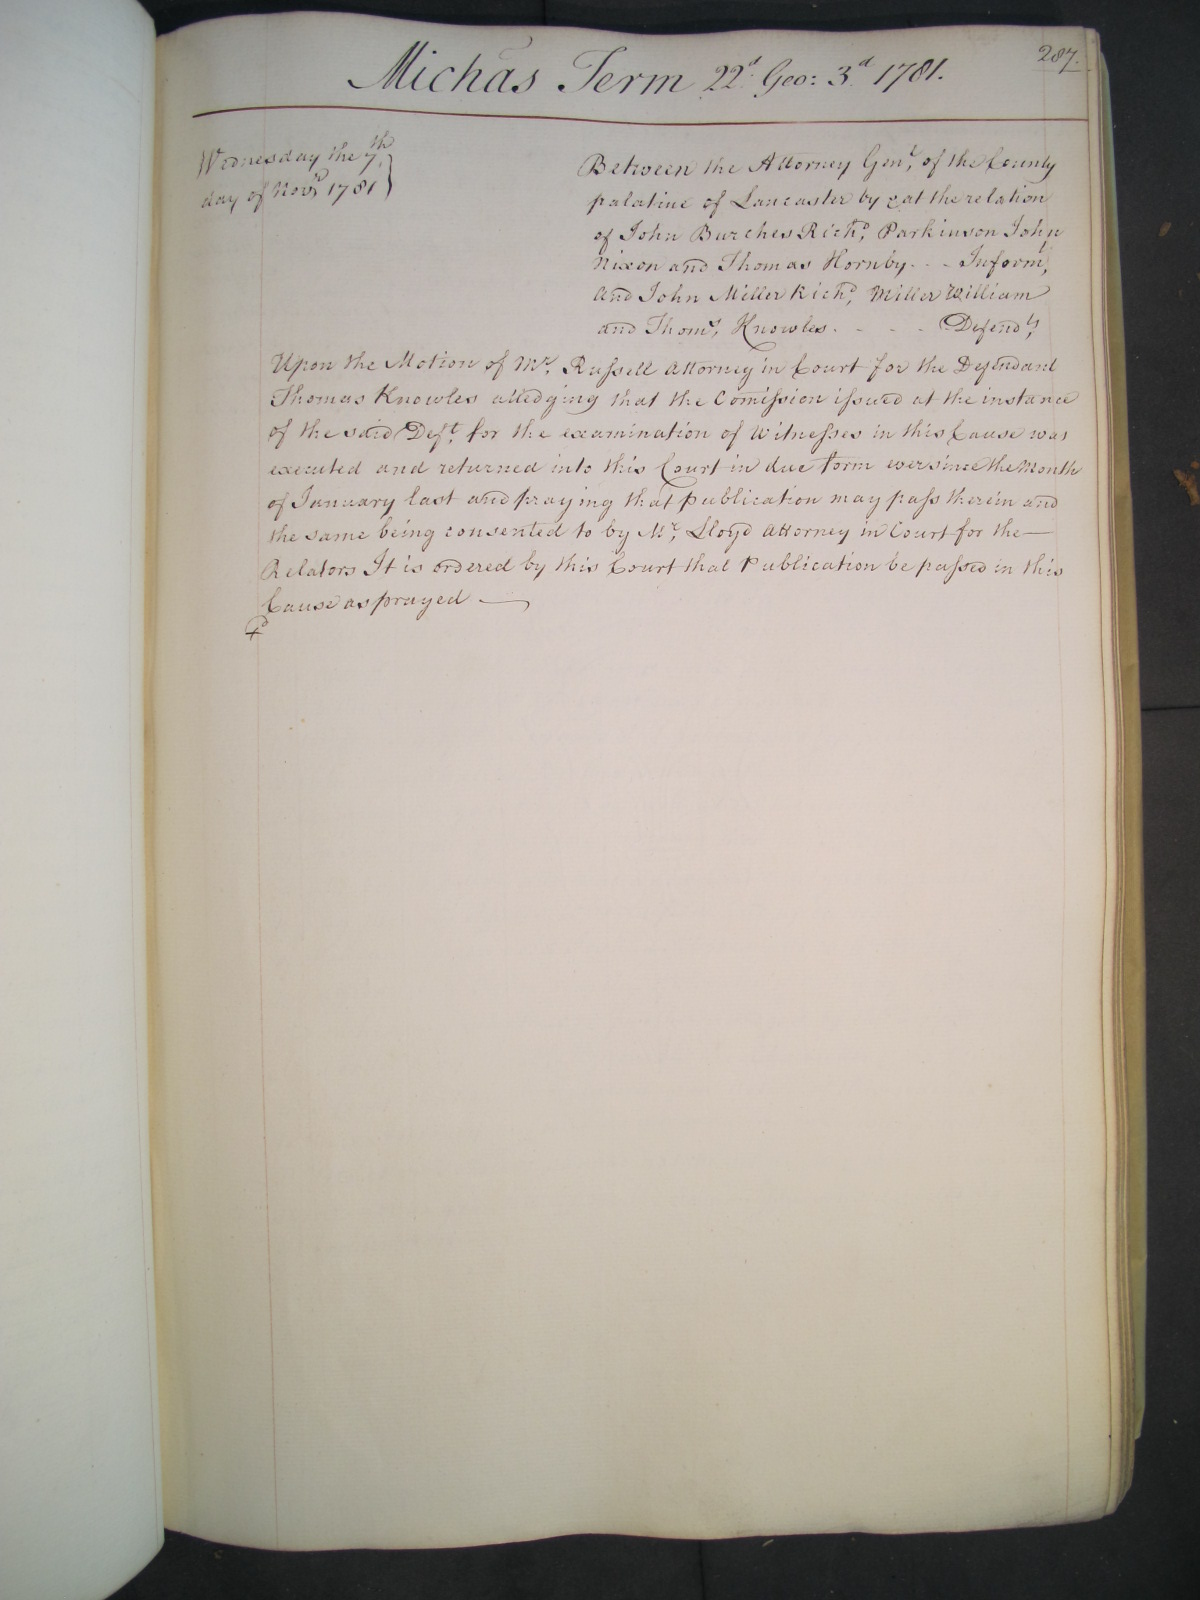 287.
Michãs Term 22d. Geo: 3d 1781.
Wednesday the 7th.
day of Novr, 1781
Between the Attorney Genl, of the County
palatine of Lancaster by & at the relation
of John Burches Richd, Parkinson John
Nixon and Thomas Hornby. - - Informts,
And John Miller Richd, Miller William
and Thoms, Knowles. - - - Defendts,
Upon the Motion of Mr, Russell Attorney in Court for the Defendant
Thomas Knowles alledging that the Comission issued at the instance
of the said Deft. for the examination of Witnesses in this Cause was
executed and returned into this Court in due form ever since the Month
of January last and praying that publication may pass therein and
the same being consented to by Mr, Lloyd Attorney in Court for the—
Relators It is ordered by this Court that Publication be passed in this
Cause as prayed —